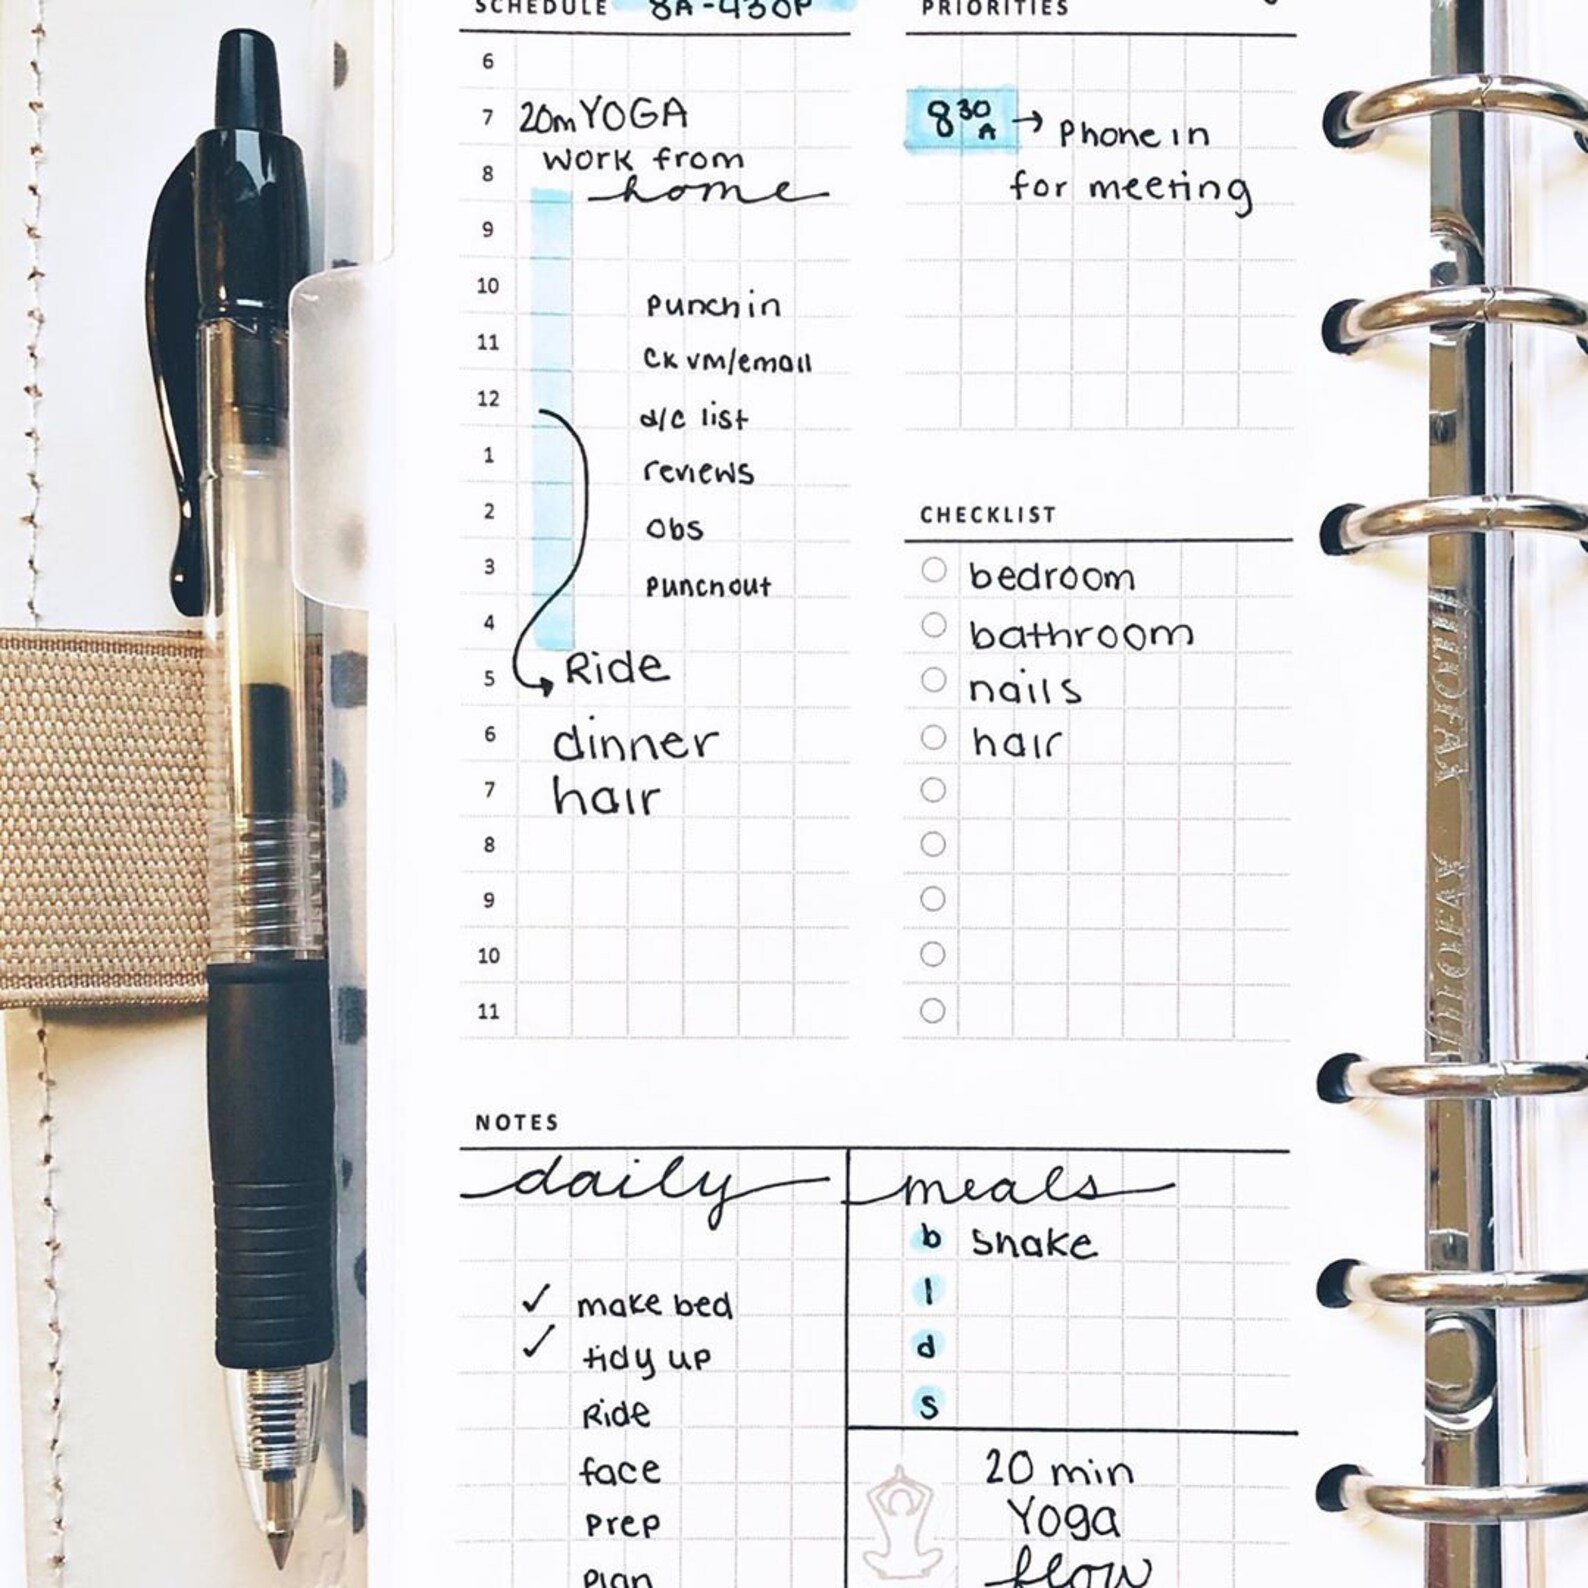 SCHEDULE 8A-430P
6
7 20m YOGA
work from
8 home
9
10 punch in
11 ck vm/email
12 d/c list
1 reviews
2 obs
3 punch out
4
5 Ride
6 dinner
7 hair
8
9
10
11
PRIORITIES
8 30 A → Phone in
for meeting
CHECKLIST
bedroom
bathroom
nails
hair
NOTES
daily
✓ make bed
✓ tidy up
Ride
face
prep
plan
meals
b shake
l
d
s
20 min
Yoga
flow
FILOFAX
FILOFAX